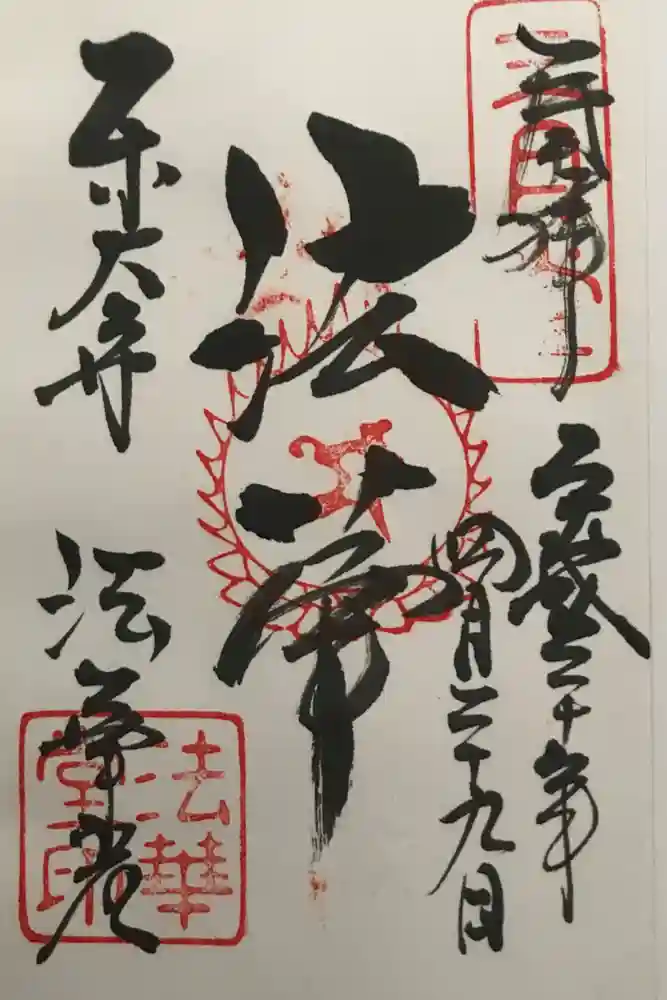 奉拝
平成三十年
四月二十九日
法華
東大寺
法華堂
法華
堂印